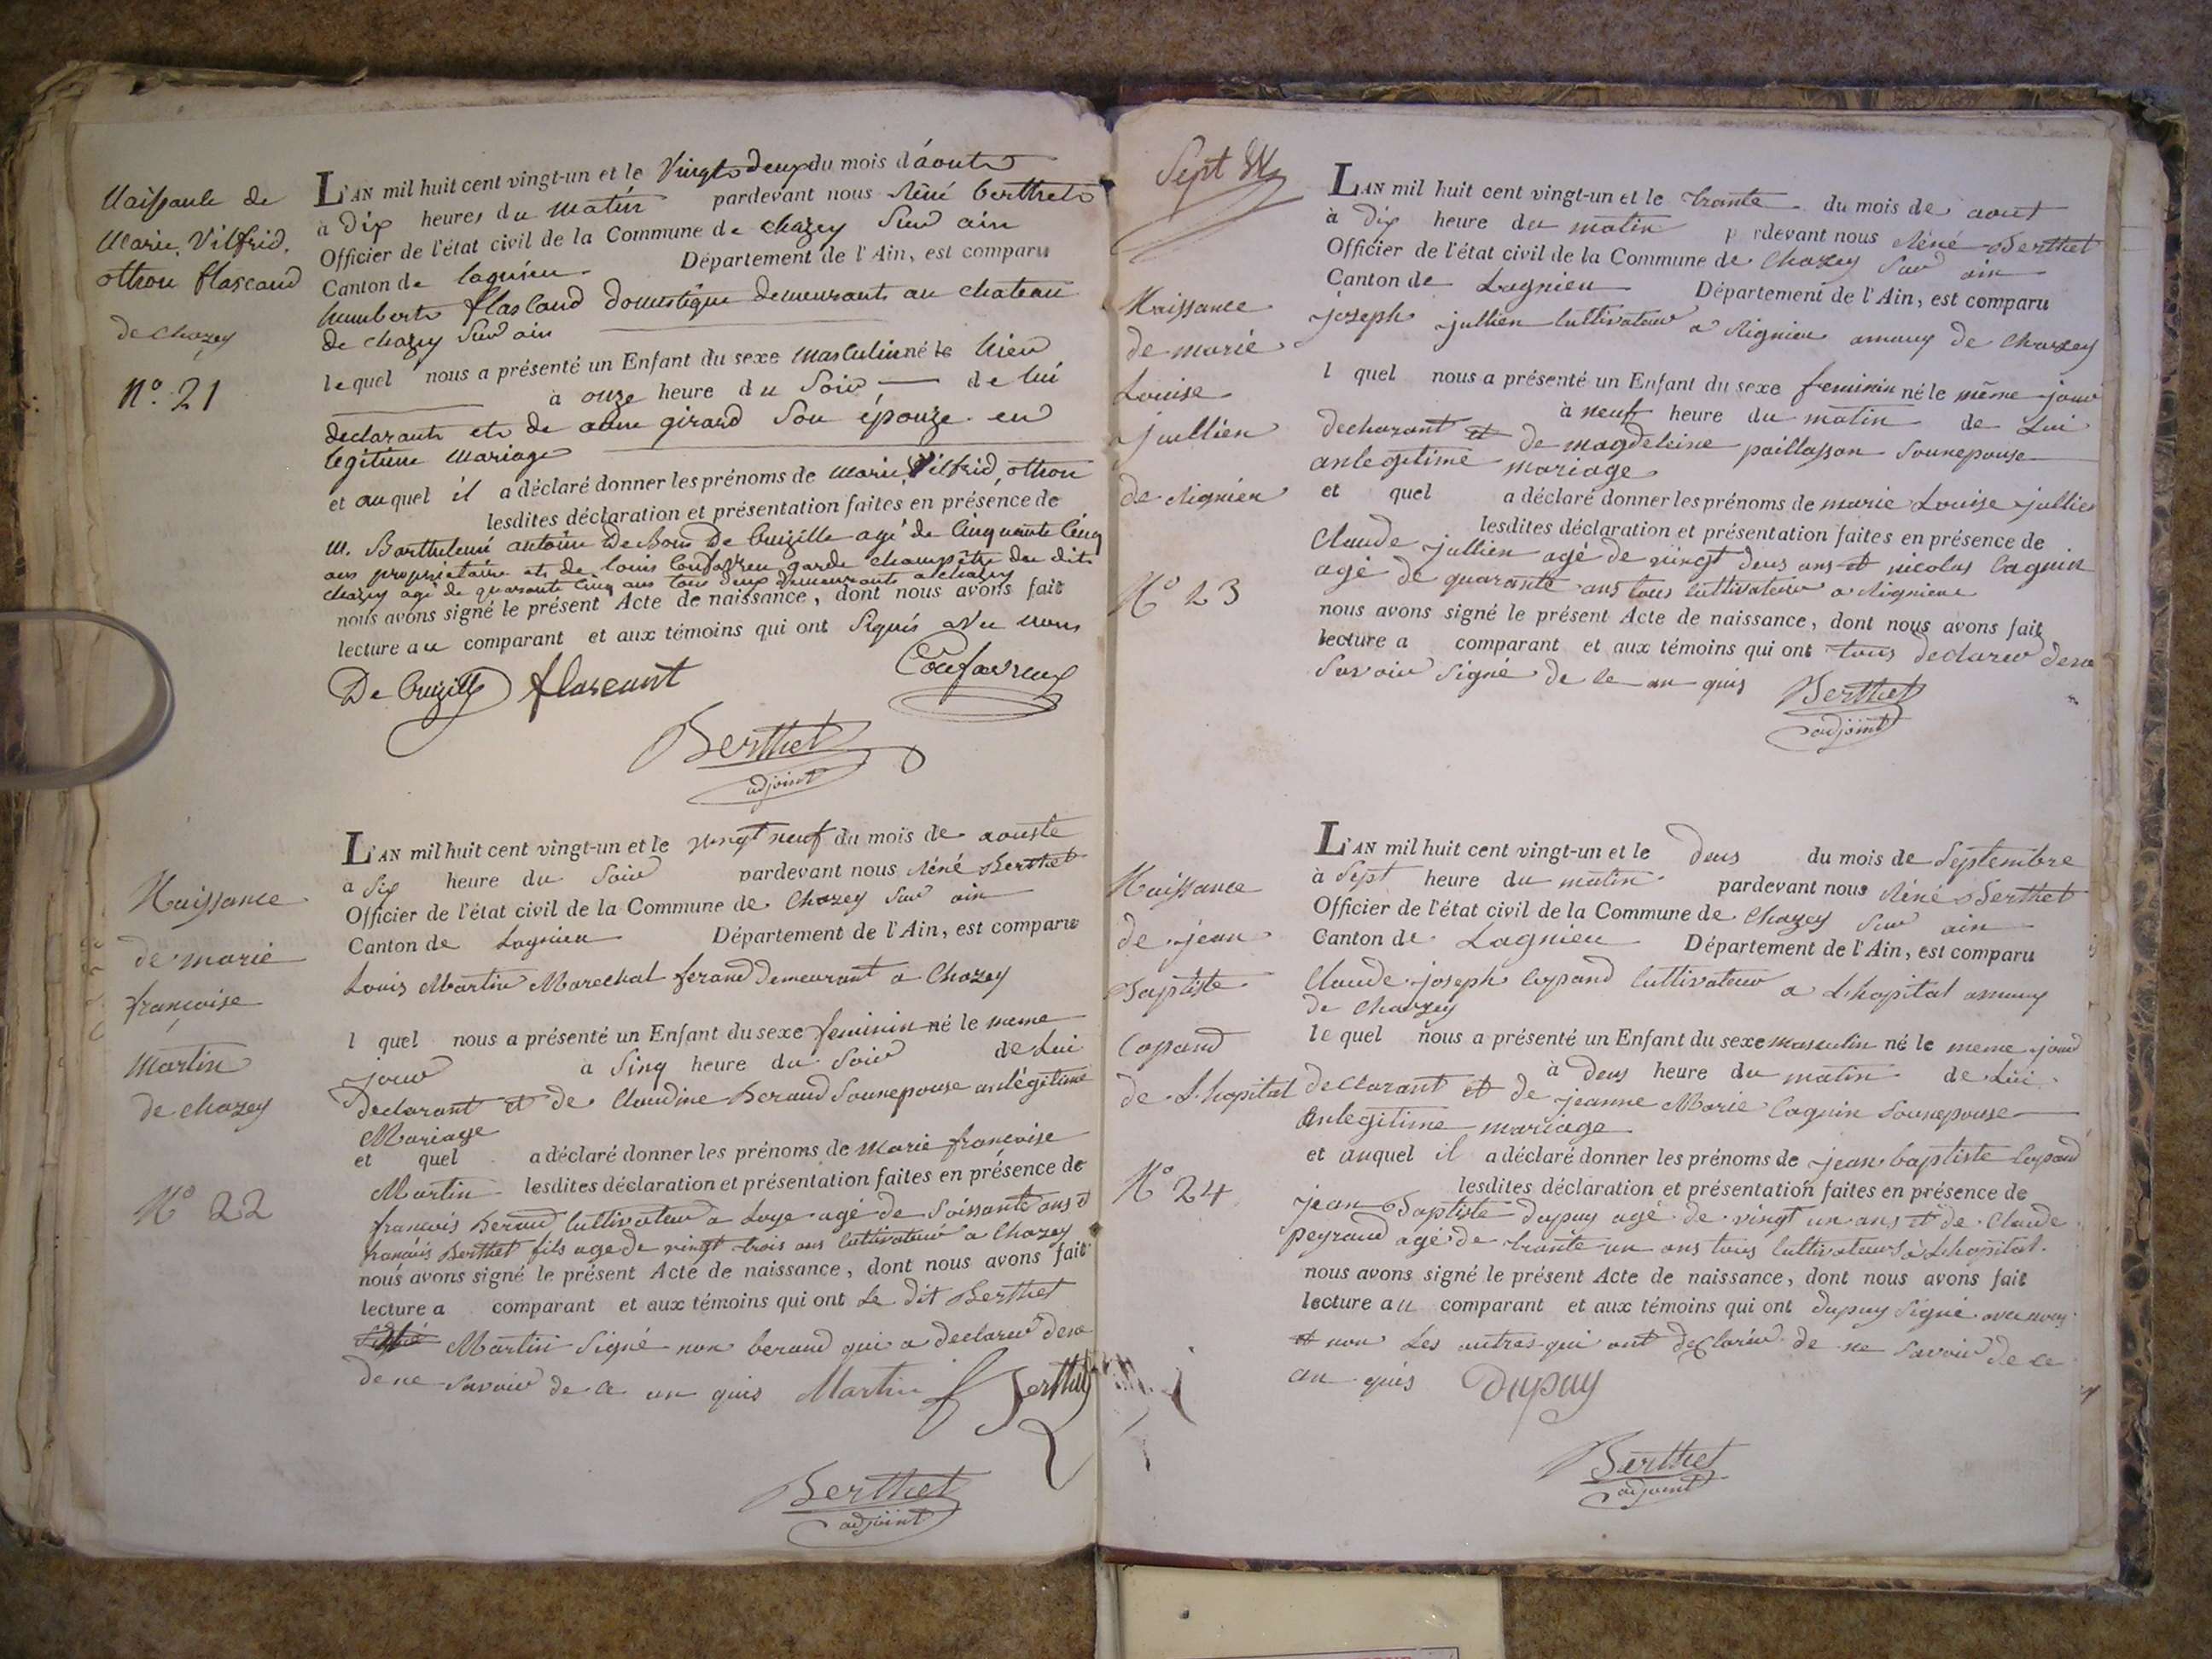 Naissance de
Marie Vilfrid
othon flascand
de chazey
N.° 21
L'AN mil huit cent vingt-un et le Vingt deux du mois d'àout
à Dix heures du matin pardevant nous Réné berthet
Officier de l'état civil de la Commune de chazey Sur ain
Canton de lagnieu Département de l'Ain, est comparu
humbert flascand domestique demeurant au chateau
de chazey Sur ain
lequel nous a présenté un Enfant du sexe masculin né le hier
à onze heure du Soir de lui
declarant et de anne girard Son épouze en
legitime mariage
et auquel il a déclaré donner les prénoms de marie Vilfrid othon
lesdites déclaration et présentation faites en présence de
M. Barthelemi antoine De bons De Cruzille agé de Cinquante Cinq
ans propriétaire et de louis Coufavreu garde champêtre du dit
chazey agé de quarante Cinq ans tous deux demeurants a chazey
nous avons signé le présent Acte de naissance, dont nous avons fait
lecture au comparant et aux témoins qui ont Signés avec nous
De Cruzille flascant Coufavreux
Berthet
adjoint
Naissance
de marie
françoise
martin
de chazey
N° 22
L'AN mil huit cent vingt-un et le vingt neuf du mois de aouste
a Six heure du Soir pardevant nous Réné Berthet
Officier de l'état civil de la Commune de Chazey Sur ain
Canton de Lagnieu Département de l'Ain, est comparu
Louis Martin Marechal ferand demeurant a Chazey
l quel nous a présenté un Enfant du sexe feminin né le meme
jour a Sinq heure du Soir de Lui
Declarant et de Claudine Beraud Sounepouse anlégitime
Mariage
et quel a déclaré donner les prénoms de Marie françoise
Martin lesdites déclaration et présentation faites en présence de
francois Beraud Cultivateur a Loye agé de Soissante ans et
françois Berthet fils age de vingt trois ans Cultivateur a Chazey
nous avons signé le présent Acte de naissance, dont nous avons fait
lecture a comparant et aux témoins qui ont Le dit Berthet
Martin Signé non beraud qui a declarer dene
de ne Savoir de ce an quis Martin f Berthet
Berthet
adjoint
Sept
Naissance
de marie
Louise
jullien
de Rignieu
N° 23
L'AN mil huit cent vingt-un et le trante du mois de aout
à dix heure du matin p rdevant nous Réné Berthet
Officier de l'état civil de la Commune de Chazey Sur ain
Canton de Lagnieu Département de l'Ain, est comparu
joseph jullien Cultivateur a Rignieu amauy de Chazey
l quel nous a présenté un Enfant du sexe feminin né le même jour
à neuf heure du matin de Lui
declarant et de magdeleine paillasson Sounepouse
anlegitime mariage
et quel a déclaré donner les prénoms de marie Louise jullien
lesdites déclaration et présentation faites en présence de
Claude jullien agé de vingt deus ans et nicolas Cagnin
agé de quarante ans tous Cultivateur a Rignieu
nous avons signé le présent Acte de naissance, dont nous avons fait
lecture a comparant et aux témoins qui ont tous declarer dene
Savoir Signé de ce an quis Berthet
adjoint
Naissance
de jean
Baptiste
Copand
de L'hopital
N° 24
L'AN mil huit cent vingt-un et le deus du mois de Septembre
à Sept heure du matin pardevant nous Réné Berthet
Officier de l'état civil de la Commune de Chazey Sur ain
Canton de Lagnieu Département de l'Ain, est comparu
Claude joseph Copand Cultivateur a L'hopital amauy
de Chazey
lequel nous a présenté un Enfant du sexe masculin né le meme jour
à deus heure du matin de Lui
declarant et de jeanne Marie Cagnin Sounepouse
anlegitime mariage
et auquel il a déclaré donner les prénoms de jean baptiste Copand
lesdites déclaration et présentation faites en présence de
jean Baptiste dupuy agé de vingt un ans et de Claude
peyraud agé de trante un ans tous Cultivateurs à L'hopital.
nous avons signé le présent Acte de naissance, dont nous avons fait
lecture au comparant et aux témoins qui ont dupuy Signé avec nous
et non Les autres qui ont declarer de ne Savoir de ce
an quis Dupuy
Berthet
adjoint